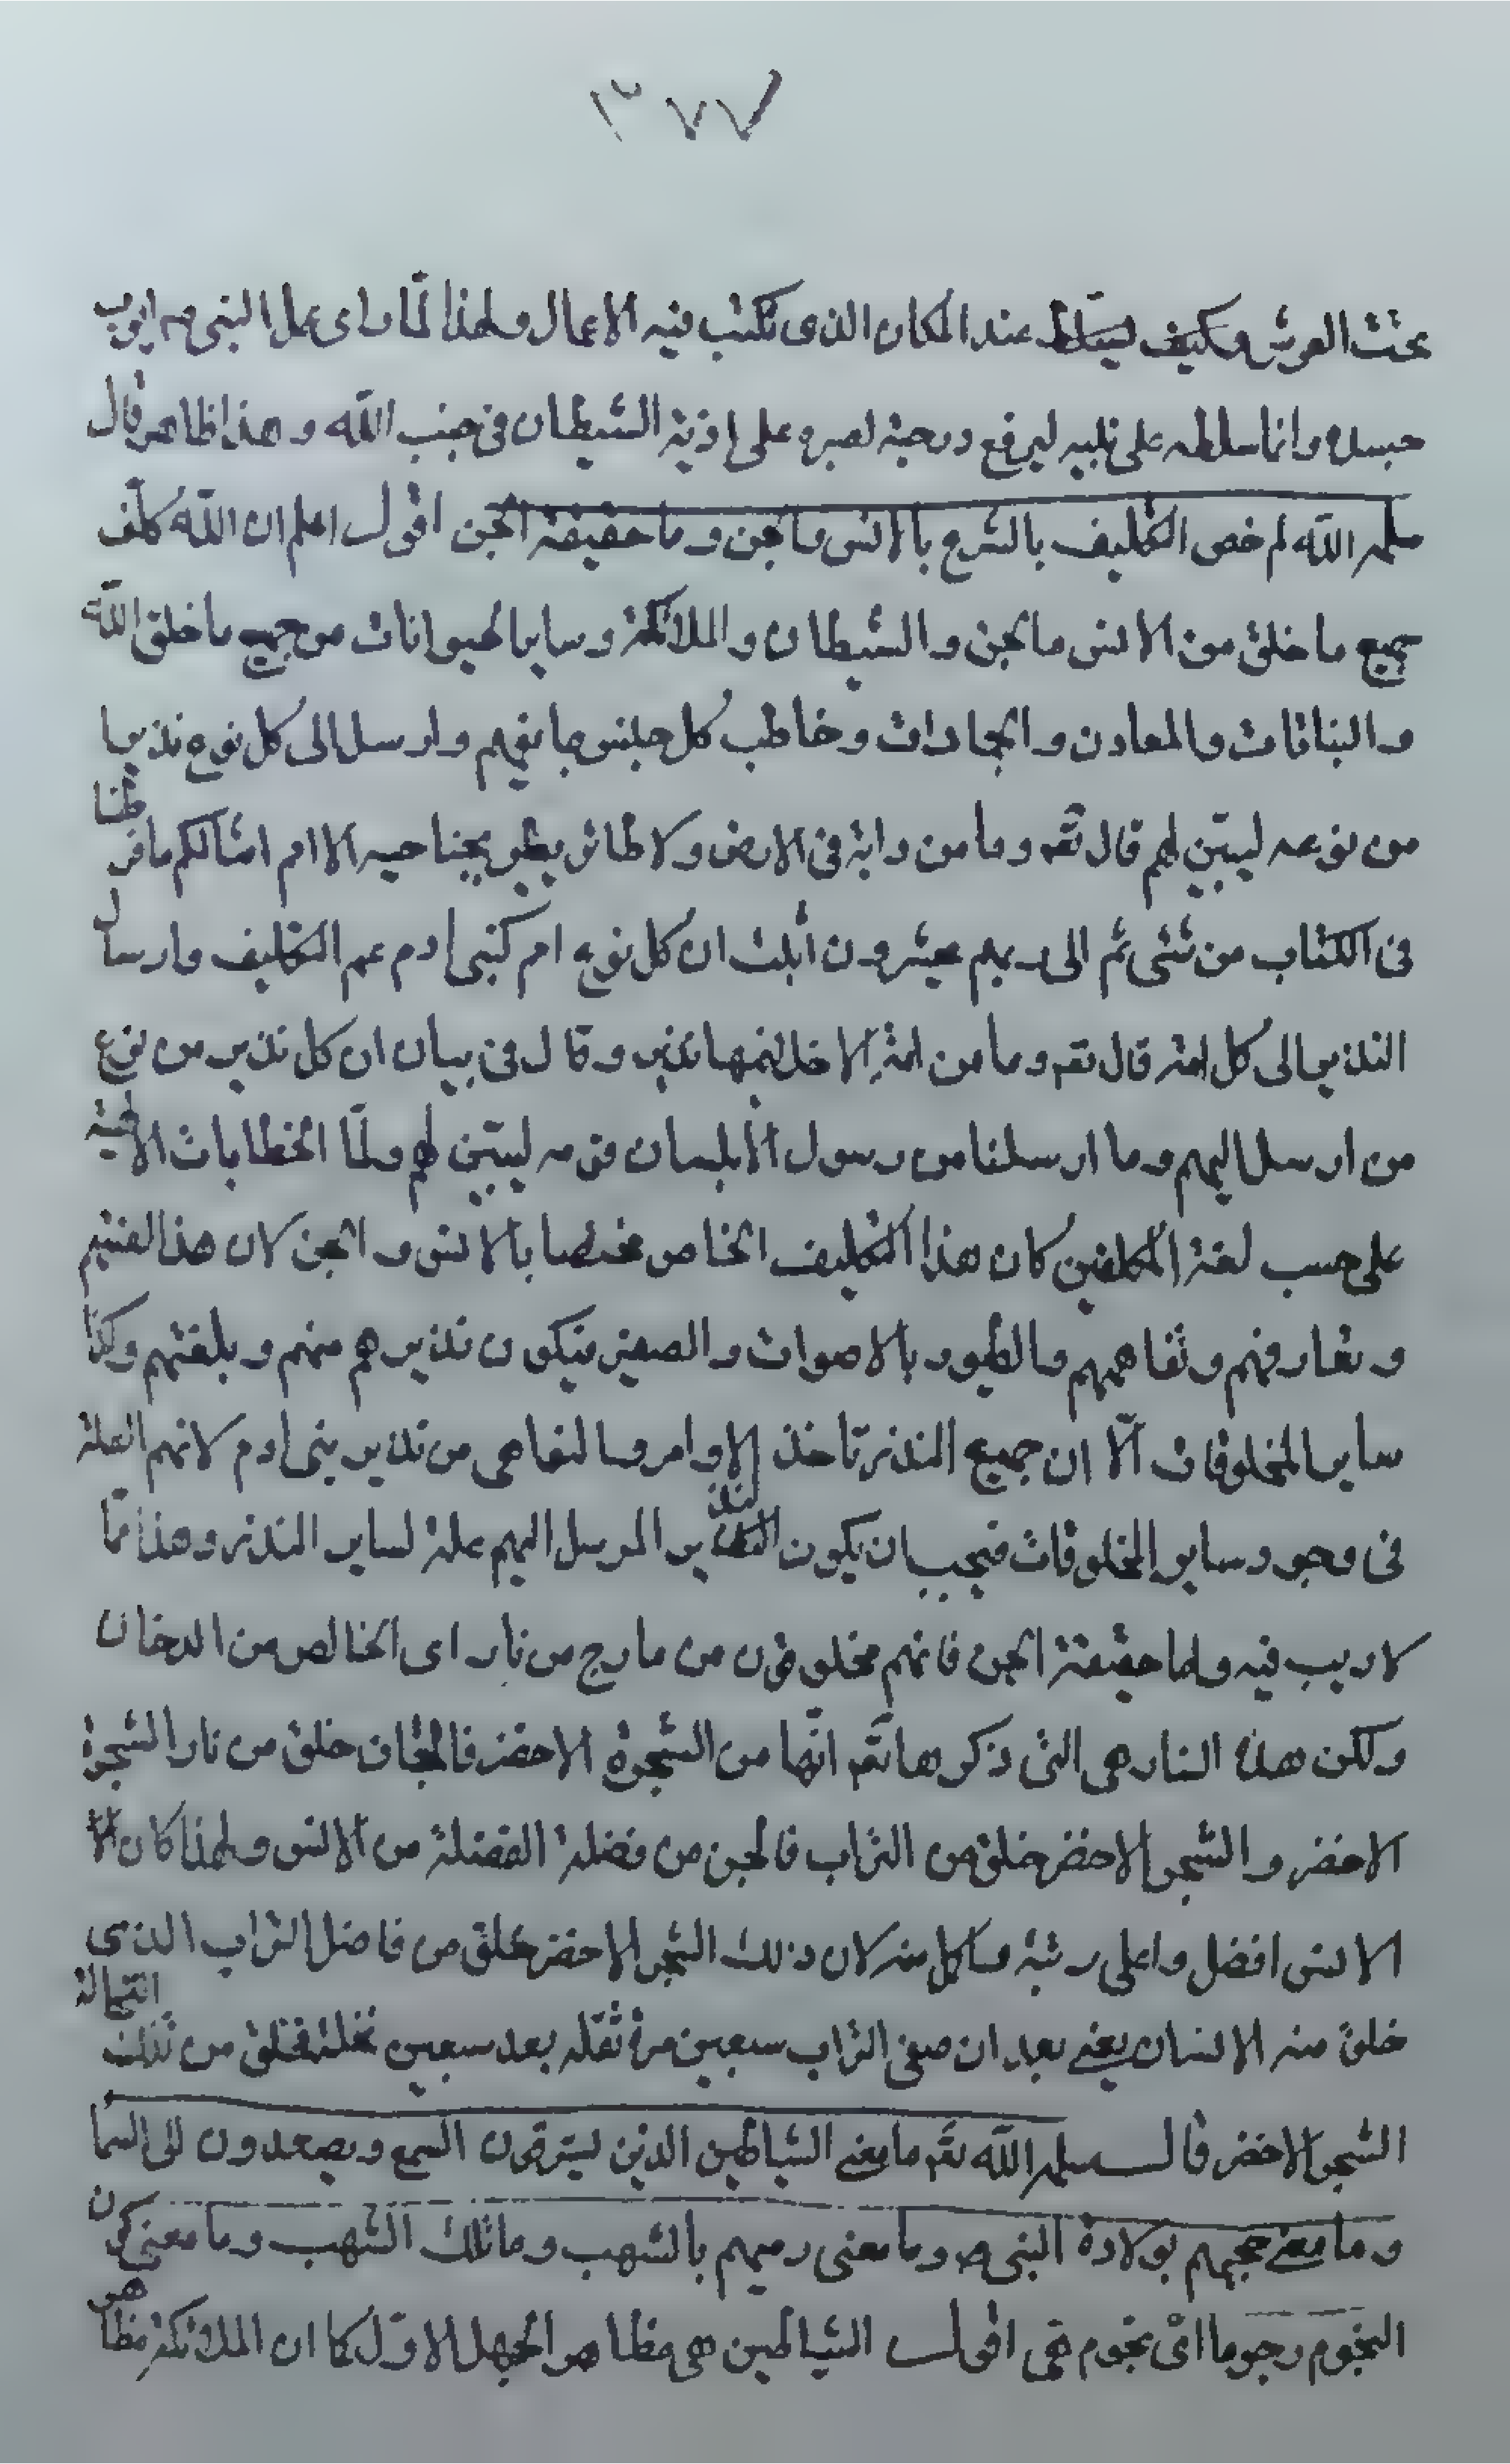 ٣٧٧
تحت العرش وكيف يتسلط عند المكان الذى تكتب فيه الاعمال ولهذا لما راى عمل النبى ايوب
حسده وانما سلطه على قلبه ليرفع درجته لصبره على اذية الشيطان فى جنب الله وهذا ظاهر قال
سلمه الله لم خص التكليف بالشرع بالانس والجن وما حقيقة الجن اقول اعلم ان الله كلف
جميع ما خلق من الانس والجن والشيطان والملائكة وساير الحيوانات من جميع ما خلق الله
والنباتات والمعادن والجمادات وخاطب كل جنس بما يفهم وارسل الى كل نوع نذيرا
من نوعه ليبين لهم قال تعـ وما من دابة فى الارض ولا طائر يطير بجناحيه الا امم امثالكم ما فرطنا
فى الكتاب من شئ ثم الى ربهم يحشرون اثبت ان كل نوع امم كبنى ادم عمهم التكليف وارسال
النذير الى كل امة قال تعـ وما من امة الا خلا فيها نذير وقال فى بيان ان كل نذير من نوع
من ارسل اليهم وما ارسلنا من رسول الا بلسان قومه ليبين لهم ولما الخطابات الالهية
على حسب لغة المكلفين كان هذا التكليف الخاص مختصا بالانس والجن لان هذا لغتهم
وتعارفهم وتفاهمهم والطيور بالاصوات والصفير فيكون نذيرهم منهم وبلغتهم وكذا
ساير المخلوقات الا ان جميع النذر تاخذ الاوامر والنواهى من نذير بنى ادم لانهم العلة
فى وجود ساير المخلوقات فيجب ان يكون النذير المرسل اليهم علة لساير النذر وهذا مما
لا ريب فيه واما حقيقة الجن فانهم مخلوقون من مارج من نار اى الخالص من الدخان
ولكن هذه النار هى التى ذكرها تعـ انها من الشجرة الاخضر فالجان خلق من نار الشجرة
الاخضر والشجر الاخضر خلق من التراب فالجن من فضلة الفضلة من الانس ولهذا كان
الانس افضل واعلى رتبة واكل منه لان ذلك الشجر الاخضر خلق من فاضل التراب الذى
خلق منه الانسان يعنى بعد ان صفى التراب سبعين مرة ثقله بعد سبعين نخلة فخلق من تلك النخالة
الشجر الاخضر قال سلمه الله تعـ ما معنى الشياطين الذين يسترقون السمع ويصعدون الى السما
وما معنى حجبهم بولادة النبى ص وما معنى رميهم بالشهب وما تلك الشهب وما معنى كون
النجوم رجوما اى نجوم هى اقول الشياطين هى مظاهر الجهل الاول كما ان الملائكة مظاهر